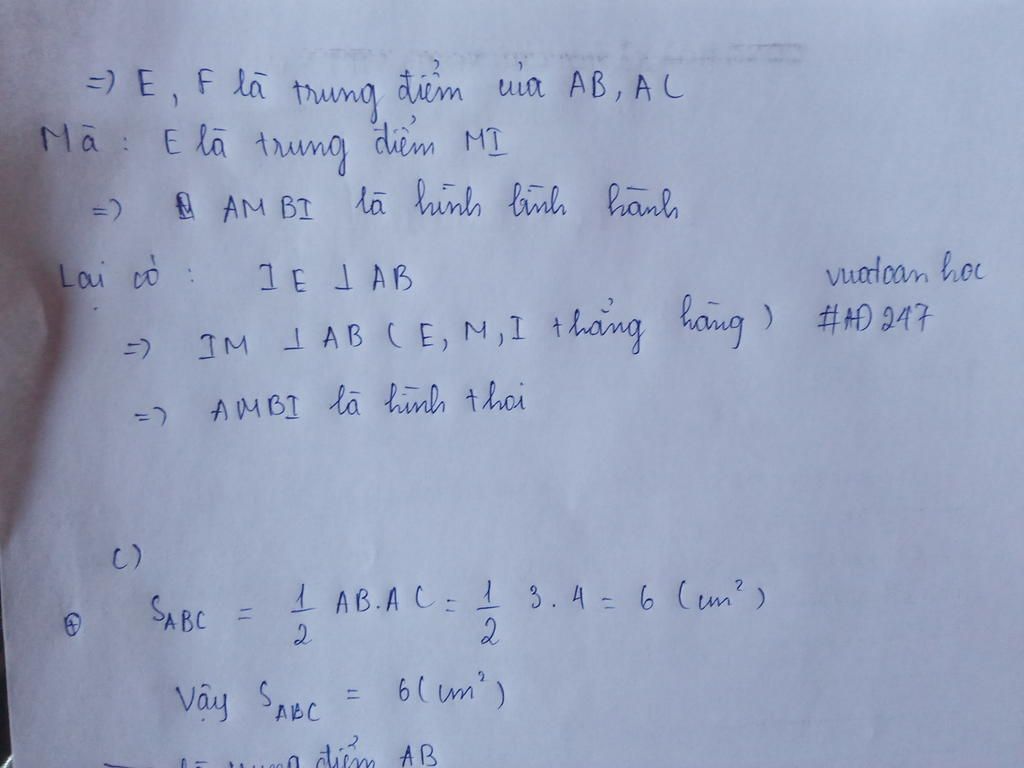 => E, F là trung điểm của AB, AC
Mà : E là trung điểm MI
=> AMBI là hình bình hành
Lại có : IE ⊥ AB
=> IM ⊥ AB ( E, M, I thẳng hàng )
=> AMBI là hình thoi
vuatoanhoc
#AD247
c)
⊕ S_ABC = 1/2 AB.AC = 1/2 3.4 = 6 (cm²)
Vậy S_ABC = 6 (cm²)
là trung điểm AB